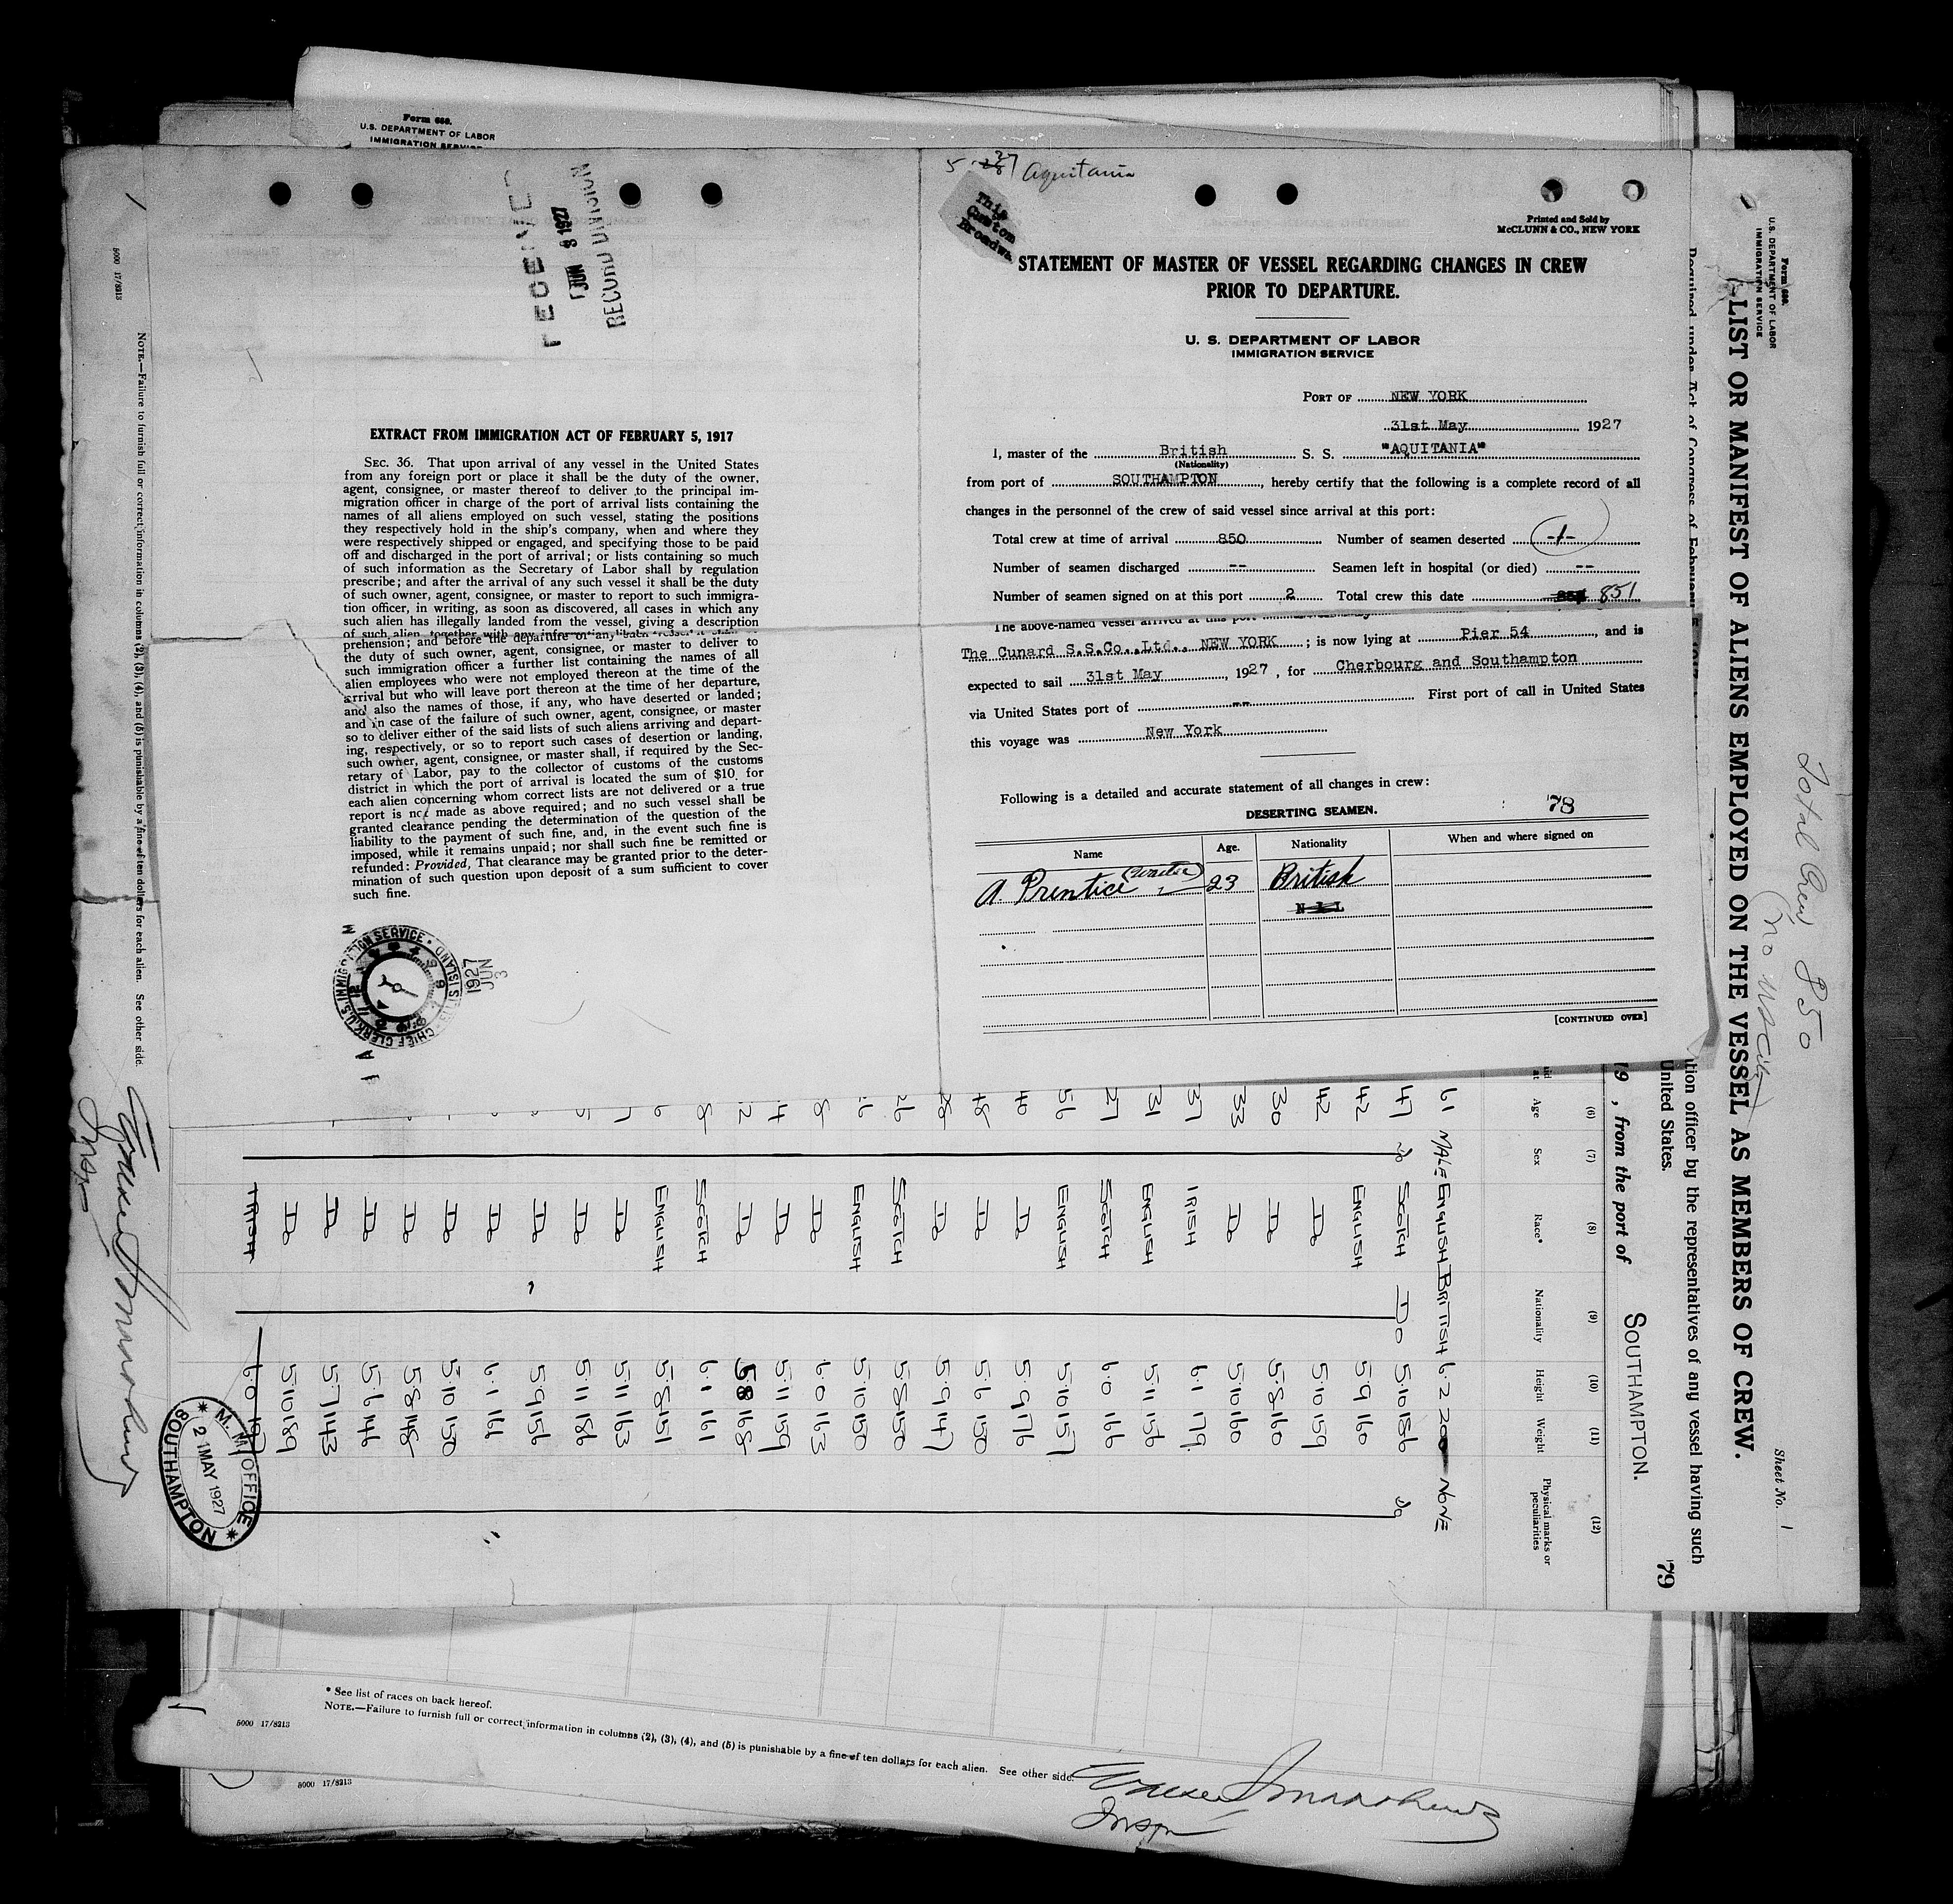 Form 680.
U.S. DEPARTMENT OF LABOR
IMMIGRATION SERVICE
RECEIVED
JUN 8 1927
RECORD DIVISION
EXTRACT FROM IMMIGRATION ACT OF FEBRUARY 5, 1917
SEC. 36. That upon arrival of any vessel in the United States
from any foreign port or place it shall be the duty of the owner,
agent, consignee, or master thereof to deliver to the principal im-
migration officer in charge of the port of arrival lists containing the
names of all aliens employed on such vessel, stating the positions
they respectively hold in the ship's company, when and where they
were respectively shipped or engaged, and specifying those to be paid
off and discharged in the port of arrival; or lists containing so much
of such information as the Secretary of Labor shall by regulation
prescribe; and after the arrival of any such vessel it shall be the duty
of such owner, agent, consignee, or master to report to such immigra-
tion officer, in writing, as soon as discovered, all cases in which any
such alien has illegally landed from the vessel, giving a description
of such alien, together with any
prehension; and before the departure of any
the duty of such owner, agent, consignee, or master to deliver to
such immigration officer a further list containing the names of all
alien employees who were not employed thereon at the time of the
arrival but who will leave port thereon at the time of her departure,
and also the names of those, if any, who have deserted or landed;
and in case of the failure of such owner, agent, consignee, or master
so to deliver either of the said lists of such aliens arriving and depart-
ing, respectively, or so to report such cases of desertion or landing,
such owner, agent, consignee, or master shall, if required by the Sec-
retary of Labor, pay to the collector of customs of the customs
district in which the port of arrival is located the sum of $10 for
each alien concerning whom correct lists are not delivered or a true
report is not made as above required; and no such vessel shall be
granted clearance pending the determination of the question of the
liability to the payment of such fine, and, in the event such fine is
imposed, while it remains unpaid; nor shall such fine be remitted or
refunded: Provided, That clearance may be granted prior to the deter-
mination of such question upon deposit of a sum sufficient to cover
such fine.
1927
JUN
3
Aquitania
This
Custom
Broadwa
Printed and Sold by
McCLUNN & CO., NEW YORK
STATEMENT OF MASTER OF VESSEL REGARDING CHANGES IN CREW
PRIOR TO DEPARTURE.
U. S. DEPARTMENT OF LABOR
IMMIGRATION SERVICE
PORT OF NEW YORK
31st May 1927
I, master of the British S. S. "AQUITANIA"
(Nationality)
from port of SOUTHAMPTON, hereby certify that the following is a complete record of all
changes in the personnel of the crew of said vessel since arrival at this port:
Total crew at time of arrival 850 Number of seamen deserted -1-
Number of seamen discharged -- Seamen left in hospital (or died) --
Number of seamen signed on at this port 2 Total crew this date 851
The above-named vessel arrived at this port
The Cunard S.S.Co.,Ltd., NEW YORK ; is now lying at Pier 54, and is
expected to sail 31st May, 1927, for Cherbourg and Southampton
via United States port of -- First port of call in United States
this voyage was New York
Following is a detailed and accurate statement of all changes in crew:
DESERTING SEAMEN. 78
Name Age. Nationality When and where signed on
A. Prentice (Waiter) 23 British
NIL
[CONTINUED OVER]
Form 680.
U.S. DEPARTMENT OF LABOR
IMMIGRATION SERVICE
LIST OR MANIFEST OF ALIENS EMPLOYED ON THE VESSEL AS MEMBERS OF CREW.
Total Crew 850
Sheet No. 1
Required under Act of Congress of February
tion officer by the representatives of any vessel having such
United States.
79
19 , from the port of SOUTHAMPTON.
(6) (7) (8) (9) (10) (11) (12)
Age Sex Race* Nationality Height Weight Physical marks or
peculiarities
61 MALE ENGLISH BRITISH 6.2 200 NONE
47 do SCOTCH Do 5.10 186 do
42 ENGLISH 5.9 160
42 Do 5.10 159
30 Do 5.8 160
33 Do 5.10 160
37 IRISH 6.1 179
31 ENGLISH 5.11 156
27 SCOTCH 6.0 166
56 ENGLISH 5.10 157
40 Do 5.9 176
48 Do 5.6 150
28 Do 5.9 147
26 SCOTCH 5.8 150
ENGLISH 5.10 150
Do 6.0 163
Do 5.11 159
Do 5.8 168
SCOTCH 6.1 161
ENGLISH 5.8 151
Do 5.11 163
Do 5.11 186
Do 5.9 156
Do 6.1 166
Do 5.10 150
Do 5.8 148
Do 5.6 146
Do 5.7 143
Do 5.10 189
IRISH 6.0 197
M. M. OFFICE
2 1 MAY 1927
SOUTHAMPTON
5000 17/8213
NOTE.—Failure to furnish full or correct information in columns (2), (3), (4), and (5) is punishable by a fine of ten dollars for each alien. See other side.
Insp
* See list of races on back hereof.
NOTE.—Failure to furnish full or correct information in columns (2), (3), (4), and (5) is punishable by a fine of ten dollars for each alien. See other side.
5000 17/8213
5000 17/8213
Insp